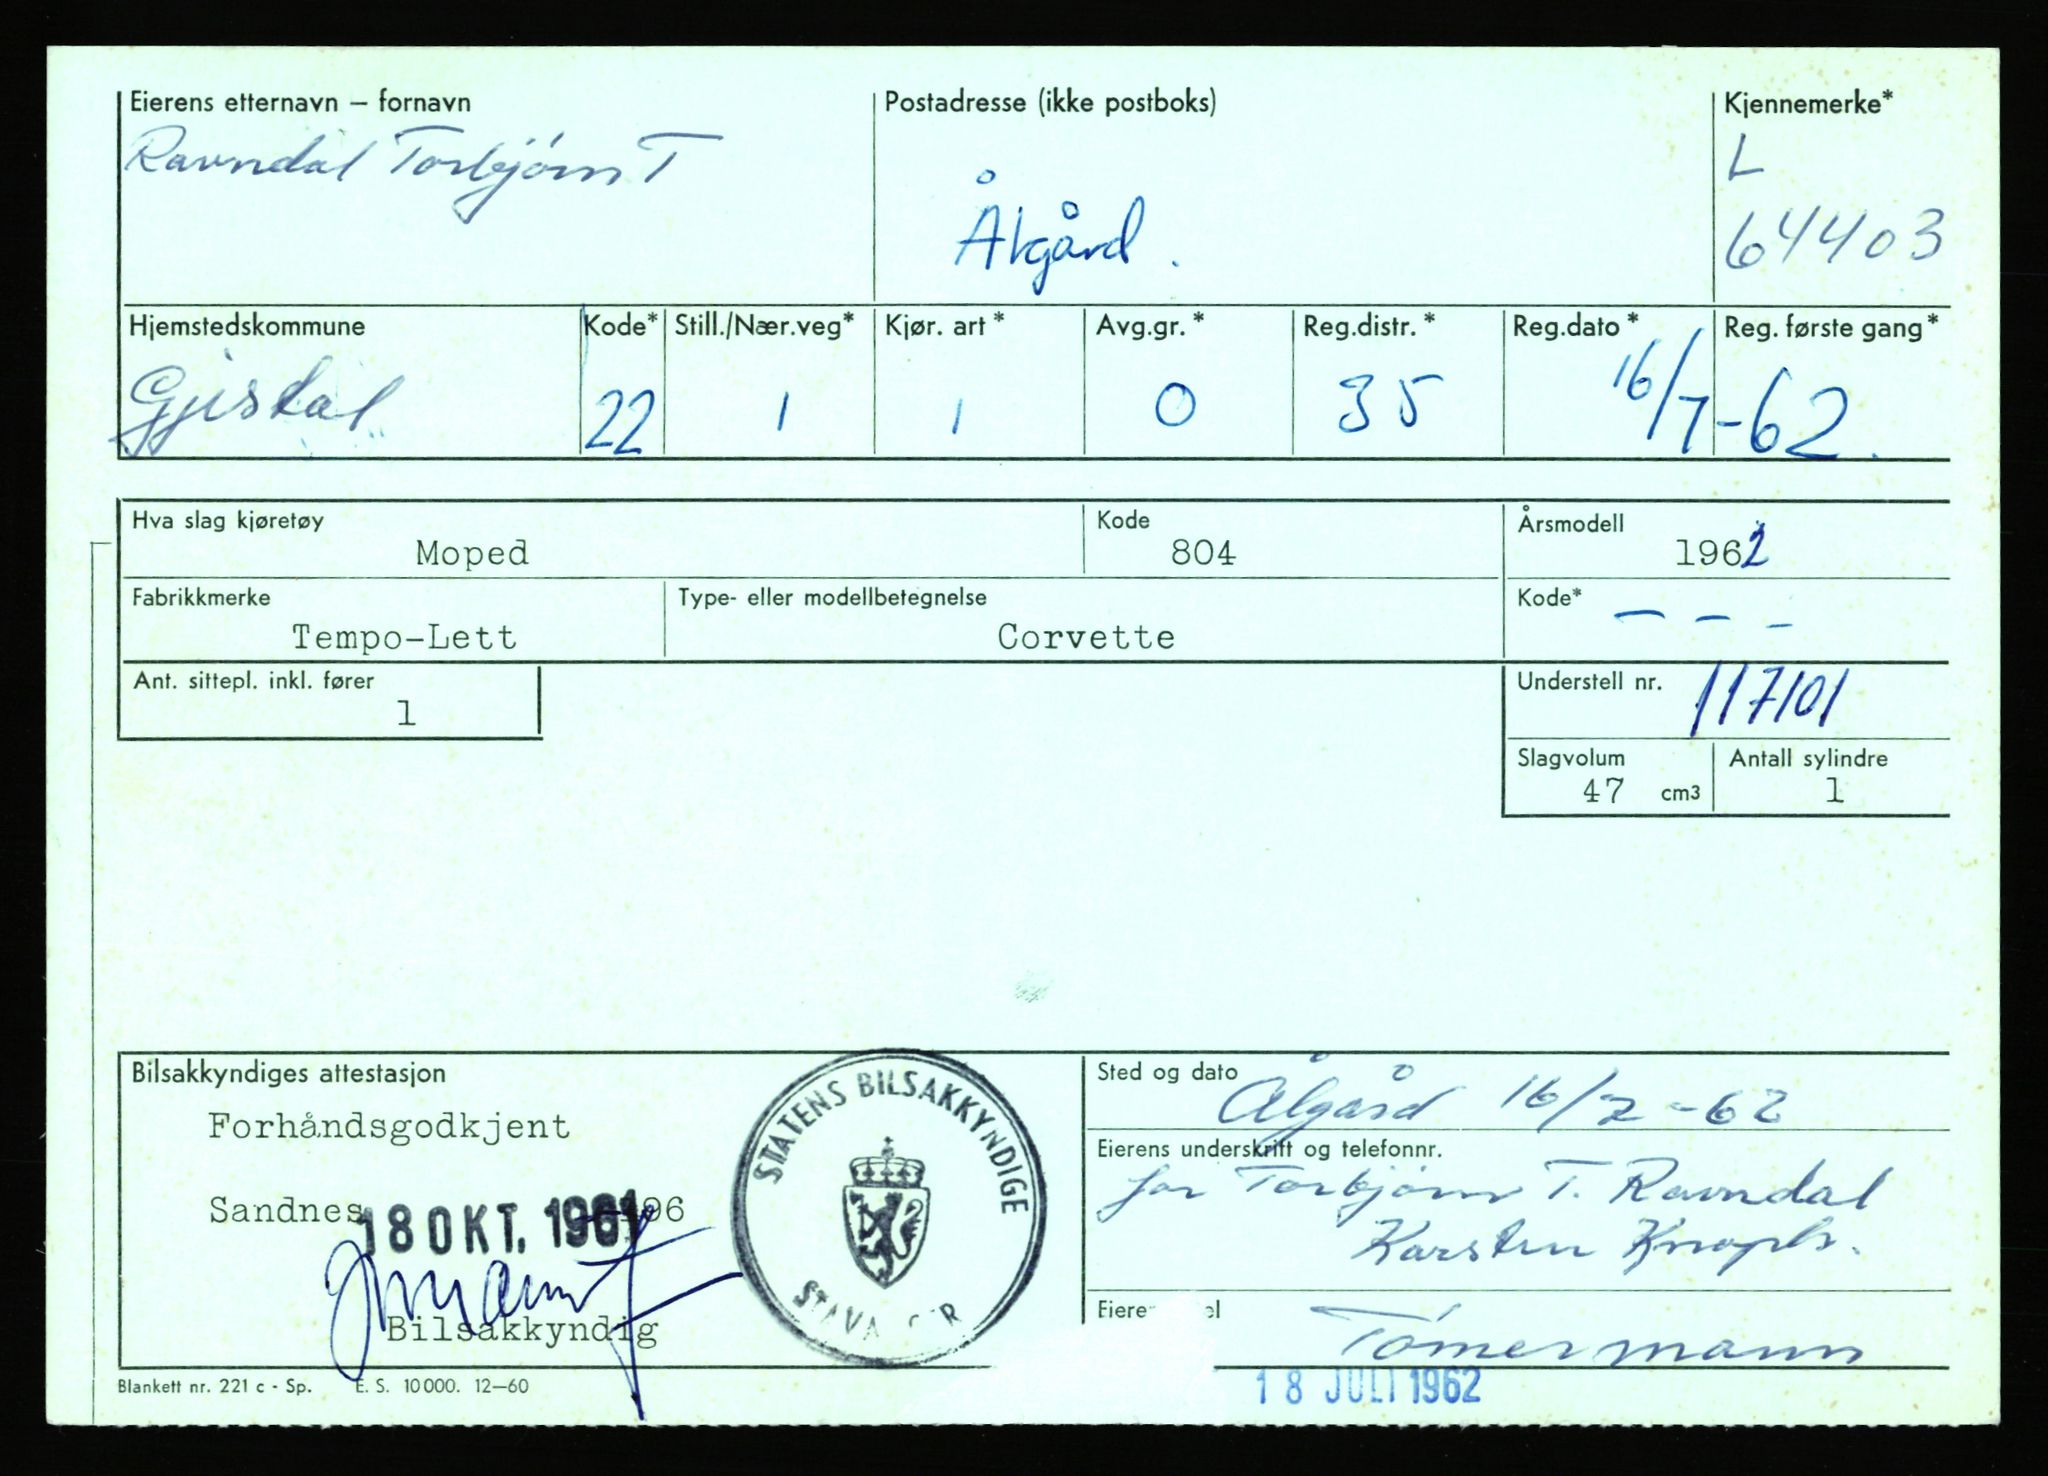 Eierens etternavn – fornavn
Ravndal Torbjørn T
Postadresse (ikke postboks)
Ålgård.
Kjennemerke*
L
64403
Hjemstedskommune
Gjestal
Kode*
22
Still./Nær.veg*
1
Kjør. art *
1
Avg.gr. *
0
Reg.distr. *
35
Reg.dato *
Reg. første gang*
16/7-62.
Hva slag kjøretøy
Moped
Kode
804
Årsmodell
1962
Fabrikkmerke
Tempo-Lett
Type- eller modellbetegnelse
Corvette
Kode*
– – –
Ant. sittepl. inkl. fører
1
Understell nr.
117101
Slagvolum
47 cm3
Antall sylindre
1
Bilsakkyndiges attestasjon
Forhåndsgodkjent
Sandnes 18 OKT. 1961 196
Bilsakkyndig
STATENS BILSAKKYNDIGE
Sted og dato
Ålgård 16/7-62
Eierens underskrift og telefonnr.
for Torbjørn T. Ravndal
Karsten
Tömermann
18 JULI 1962
Blankett nr. 221 c - Sp. E. S. 10000. 12–60